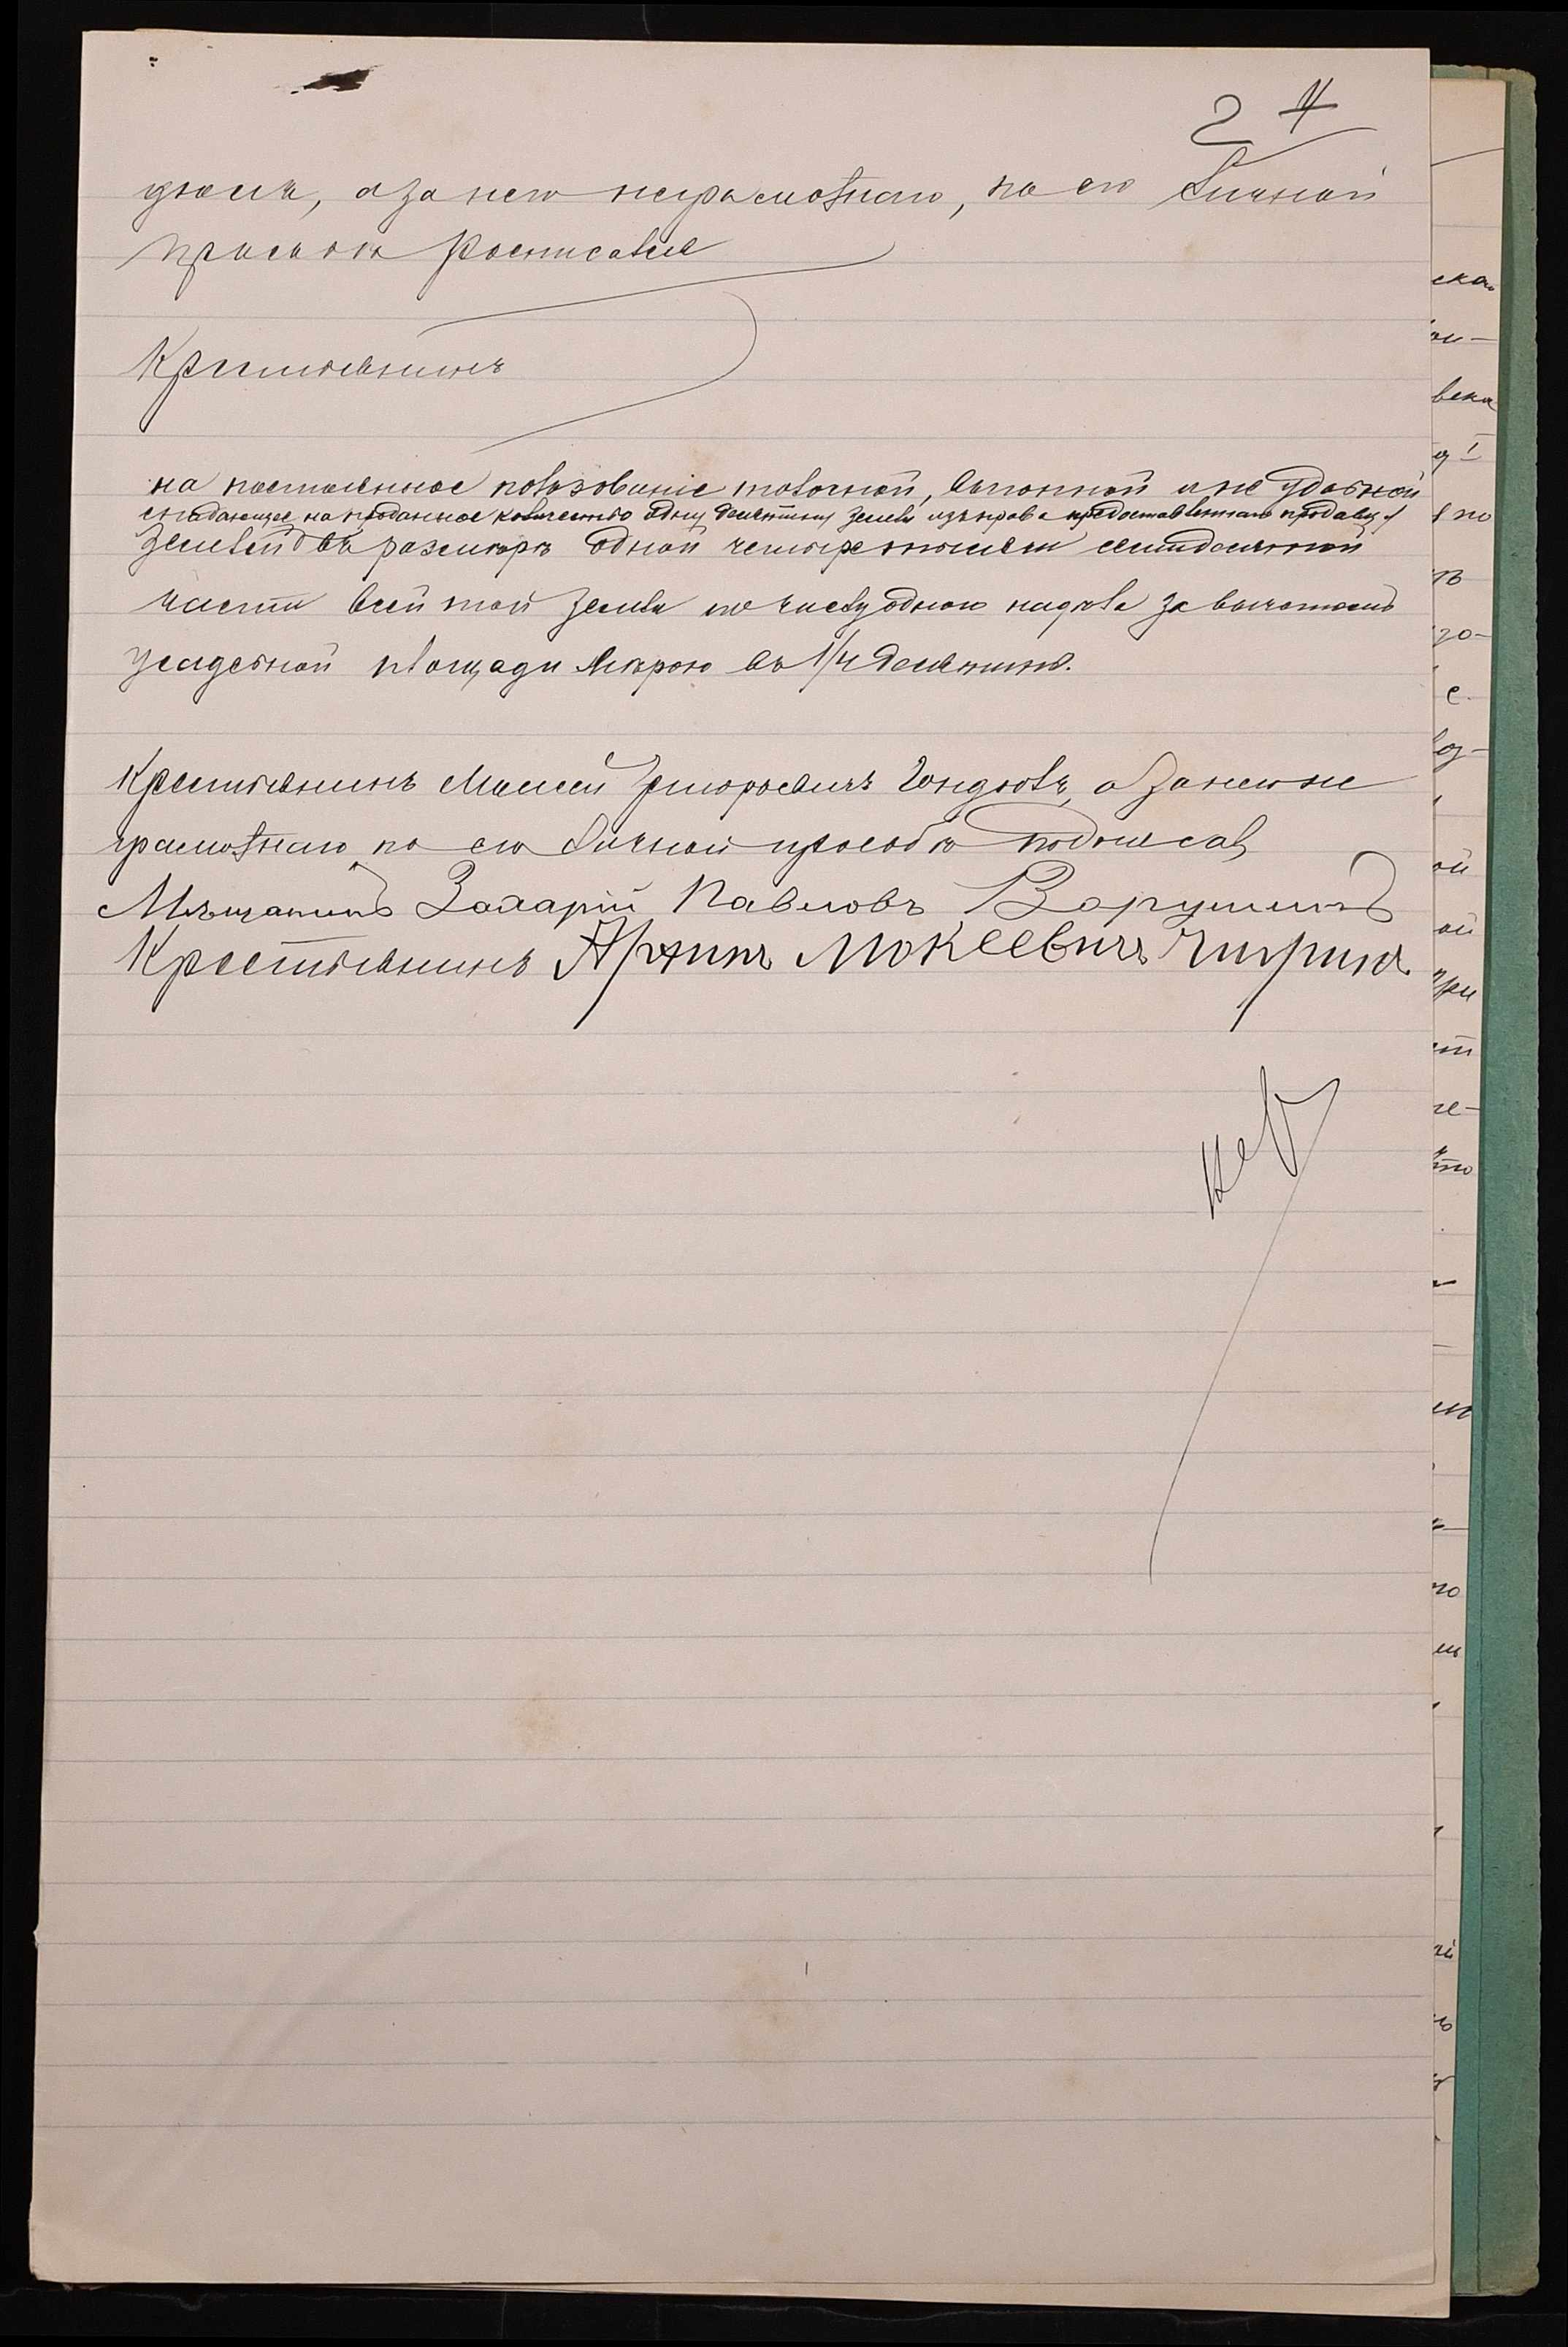 2 4
дюкъ, а за него неграмотнаго, по его личной
просьбѣ росписался
Крестьянинъ
на постоянное пользованіе толочной, выгонной и не удобной
спадающее на проданное количество одну десятину земли изъ права предоставленнаго продавцу
землей въ размѣрѣ одной четыре тысячи семидесятой
части всей той земли по числу одного надѣла за вычетомъ
усадебной площади мѣрою въ 1/4 десятины.
Крестьянинъ Моисей Григорьевичъ а за него не
грамотнаго по его личной просьбѣ подписалъ
Мѣщанинъ Захарій Павловъ
Крестьянинъ Архипъ Мокеевичъ Чигринъ